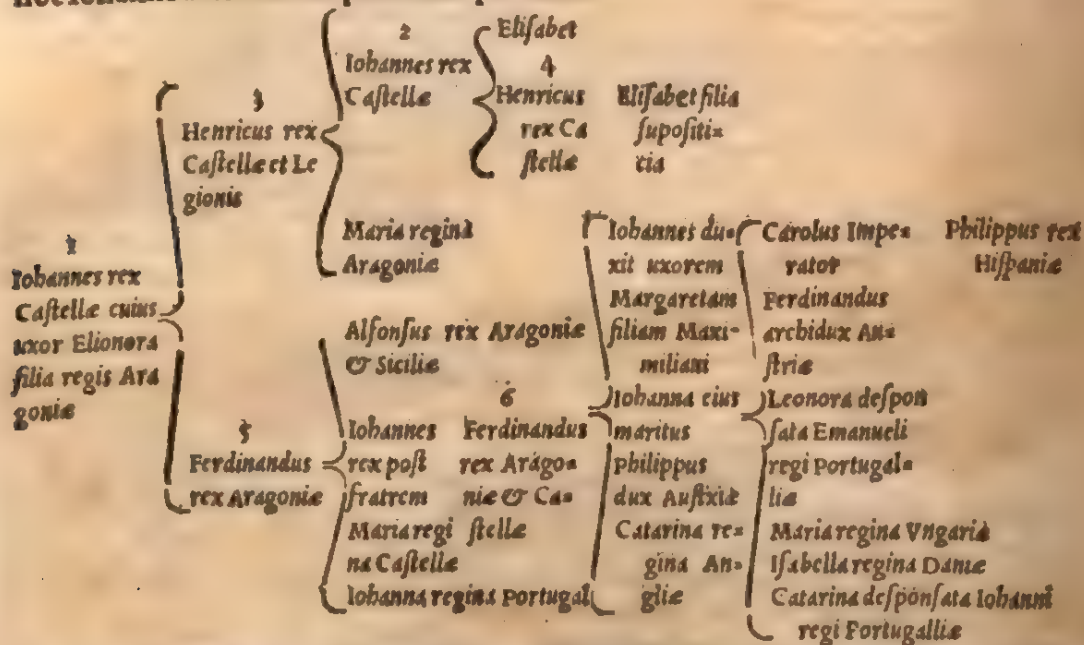 1
Iohannes rex
Caſtellæ cuius
uxor Elionora
filia regis Ara
goniæ
3
Henricus rex
Caſtellæ et Le
gionis
5
Ferdinandus
rex Aragoniæ
2
Iohannes rex
Caſtellæ
Maria regina
Aragoniæ
Eliſabet
4
Henricus
rex Ca
ſtellæ
Eliſabet filia
ſupoſiti=
cia
Alfonſus rex Aragoniæ
& Siciliæ
Iohannes
rex poſt
fratrem
Maria regi
na Caſtellæ
Iohanna regina Portugal
6
Ferdinandus
rex Arago=
niæ & Ca=
ſtellæ
Iohannes du=
xit uxorem
Margaretam
filiam Maxi=
miliani
Iohanna eius
maritus
Philippus
dux Auſtxiæ
Catarina re=
gina An=
gliæ
Carolus Impe=
rator
Ferdinandus
archidux Au=
ſtriæ
Leonora deſpon
ſata Emanueli
regi Portugal=
liæ
Maria regina Vngariæ
Iſabella regina Daniæ
Catarina deſponſata Iohanni
regi Portugalliæ
Philippus rex
Hiſpaniæ